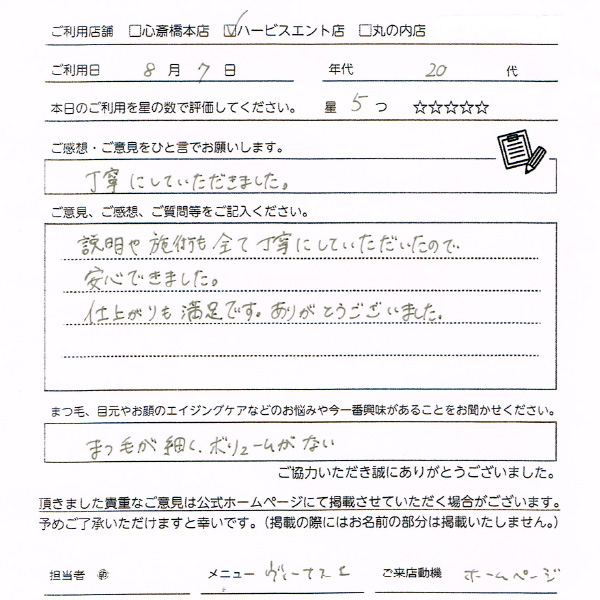 ご利用店舗 □心斎橋本店 ☑ハービスエント店 □丸の内店
ご利用日 8 月 7 日 年代 20 代
本日のご利用を星の数で評価してください。 星 5 つ ☆☆☆☆☆
ご感想・ご意見をひと言でお願いします。
丁寧にしていただきました。
ご意見、ご感想、ご質問等をご記入ください。
説明や施術も全て丁寧にしていただいたので
安心できました。
仕上がりも満足です。ありがとうございました。
まつ毛、目元やお顔のエイジングケアなどのお悩みや今一番興味があることをお聞かせください。
まつ毛が細く、ボリュームがない
ご協力いただき誠にありがとうございました。
頂きました貴重なご意見は公式ホームページにて掲載させていただく場合がございます。
予めご了承いただけますと幸いです。（掲載の際にはお名前の部分は掲載いたしません。）
担当者 メニュー ヴィーナス ご来店動機 ホームページ